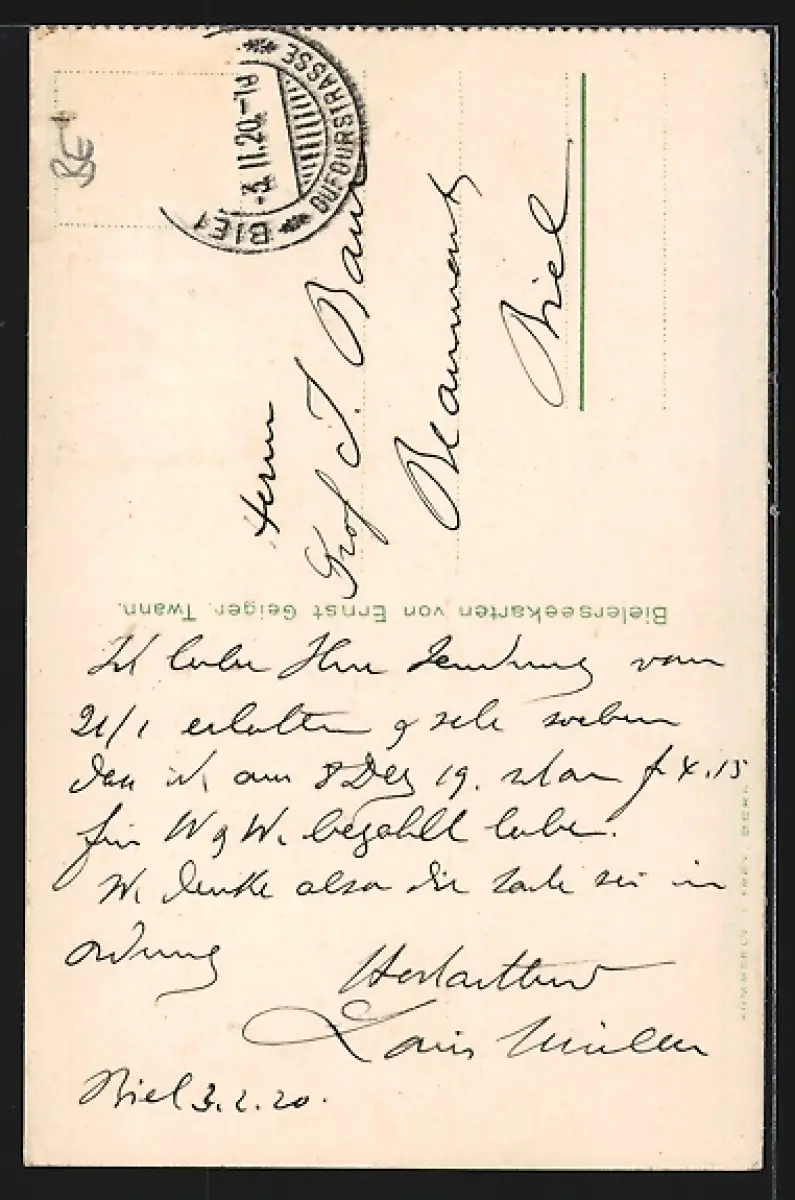 BE
BIEL 1
-3.II.20.-18
DUFOURSTRASSE
Herrn
Prof J. Baur
Beaumont
Biel
Bielerseekarten von Ernst Geiger, Twann.
Ich habe Ihre Sendung vom
21/1 erhalten & sehe soeben
dass ich am 8 Dez 19. schon f 4.15
für W & W. bezahlt habe.
Ich denke also die Sache sei in
Ordnung
Hochachtend
Louis Müller
Biel 3.2.20.